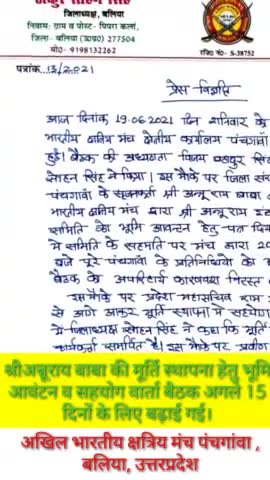 जिलाध्यक्ष, बलिया
निवास: ग्राम व पोस्ट- पिपरा कलां,
जिला- बलिया (उ०प्र०) 277504
मो० 9198132262
रजि० नं०- S-38752
पत्रांक. 13/2021
प्रेस-विज्ञप्ति
आज दिनांक 19.06.2021 दिन शनिवार के
भारतीय क्षत्रिय मंच क्षेत्रीय कार्यालय पंचगावां
हुई। बैठक की अध्यक्षता विजय बहादुर सिंह
सोहन सिंह ने किया। इस मौके पर जिला
पंचगावां के श्री अबूराय बाबा
भारतीय क्षत्रिय मंच द्वारा श्री अबूराय
समिति को भूमि आवन्टन हेतु पत्र दिया
में समिति के सहमति पर मंच द्वारा 20
बजे पूरे पंचगावां के प्रतिनिधियों का
बैठक के अपरिहार्य कारणवश निरस्त
इस मौके पर प्रदेश महासचिव राम
से अणे आकर मूर्ति स्थापना में सहयोग
में जिलाध्यक्ष सोहन सिंह ने कहा कि मूर्ति
कार्यकर्ता समर्पित है। इस मौके पर प्रवीण
श्रीअबूराय बाबा की मूर्ति स्थापना हेतु भूमि
आवंटन व सहयोग वार्ता बैठक अगले 15
दिनों के लिए बढ़ाई गई।
अखिल भारतीय क्षत्रिय मंच पंचगांवा ,
बलिया, उत्तरप्रदेश